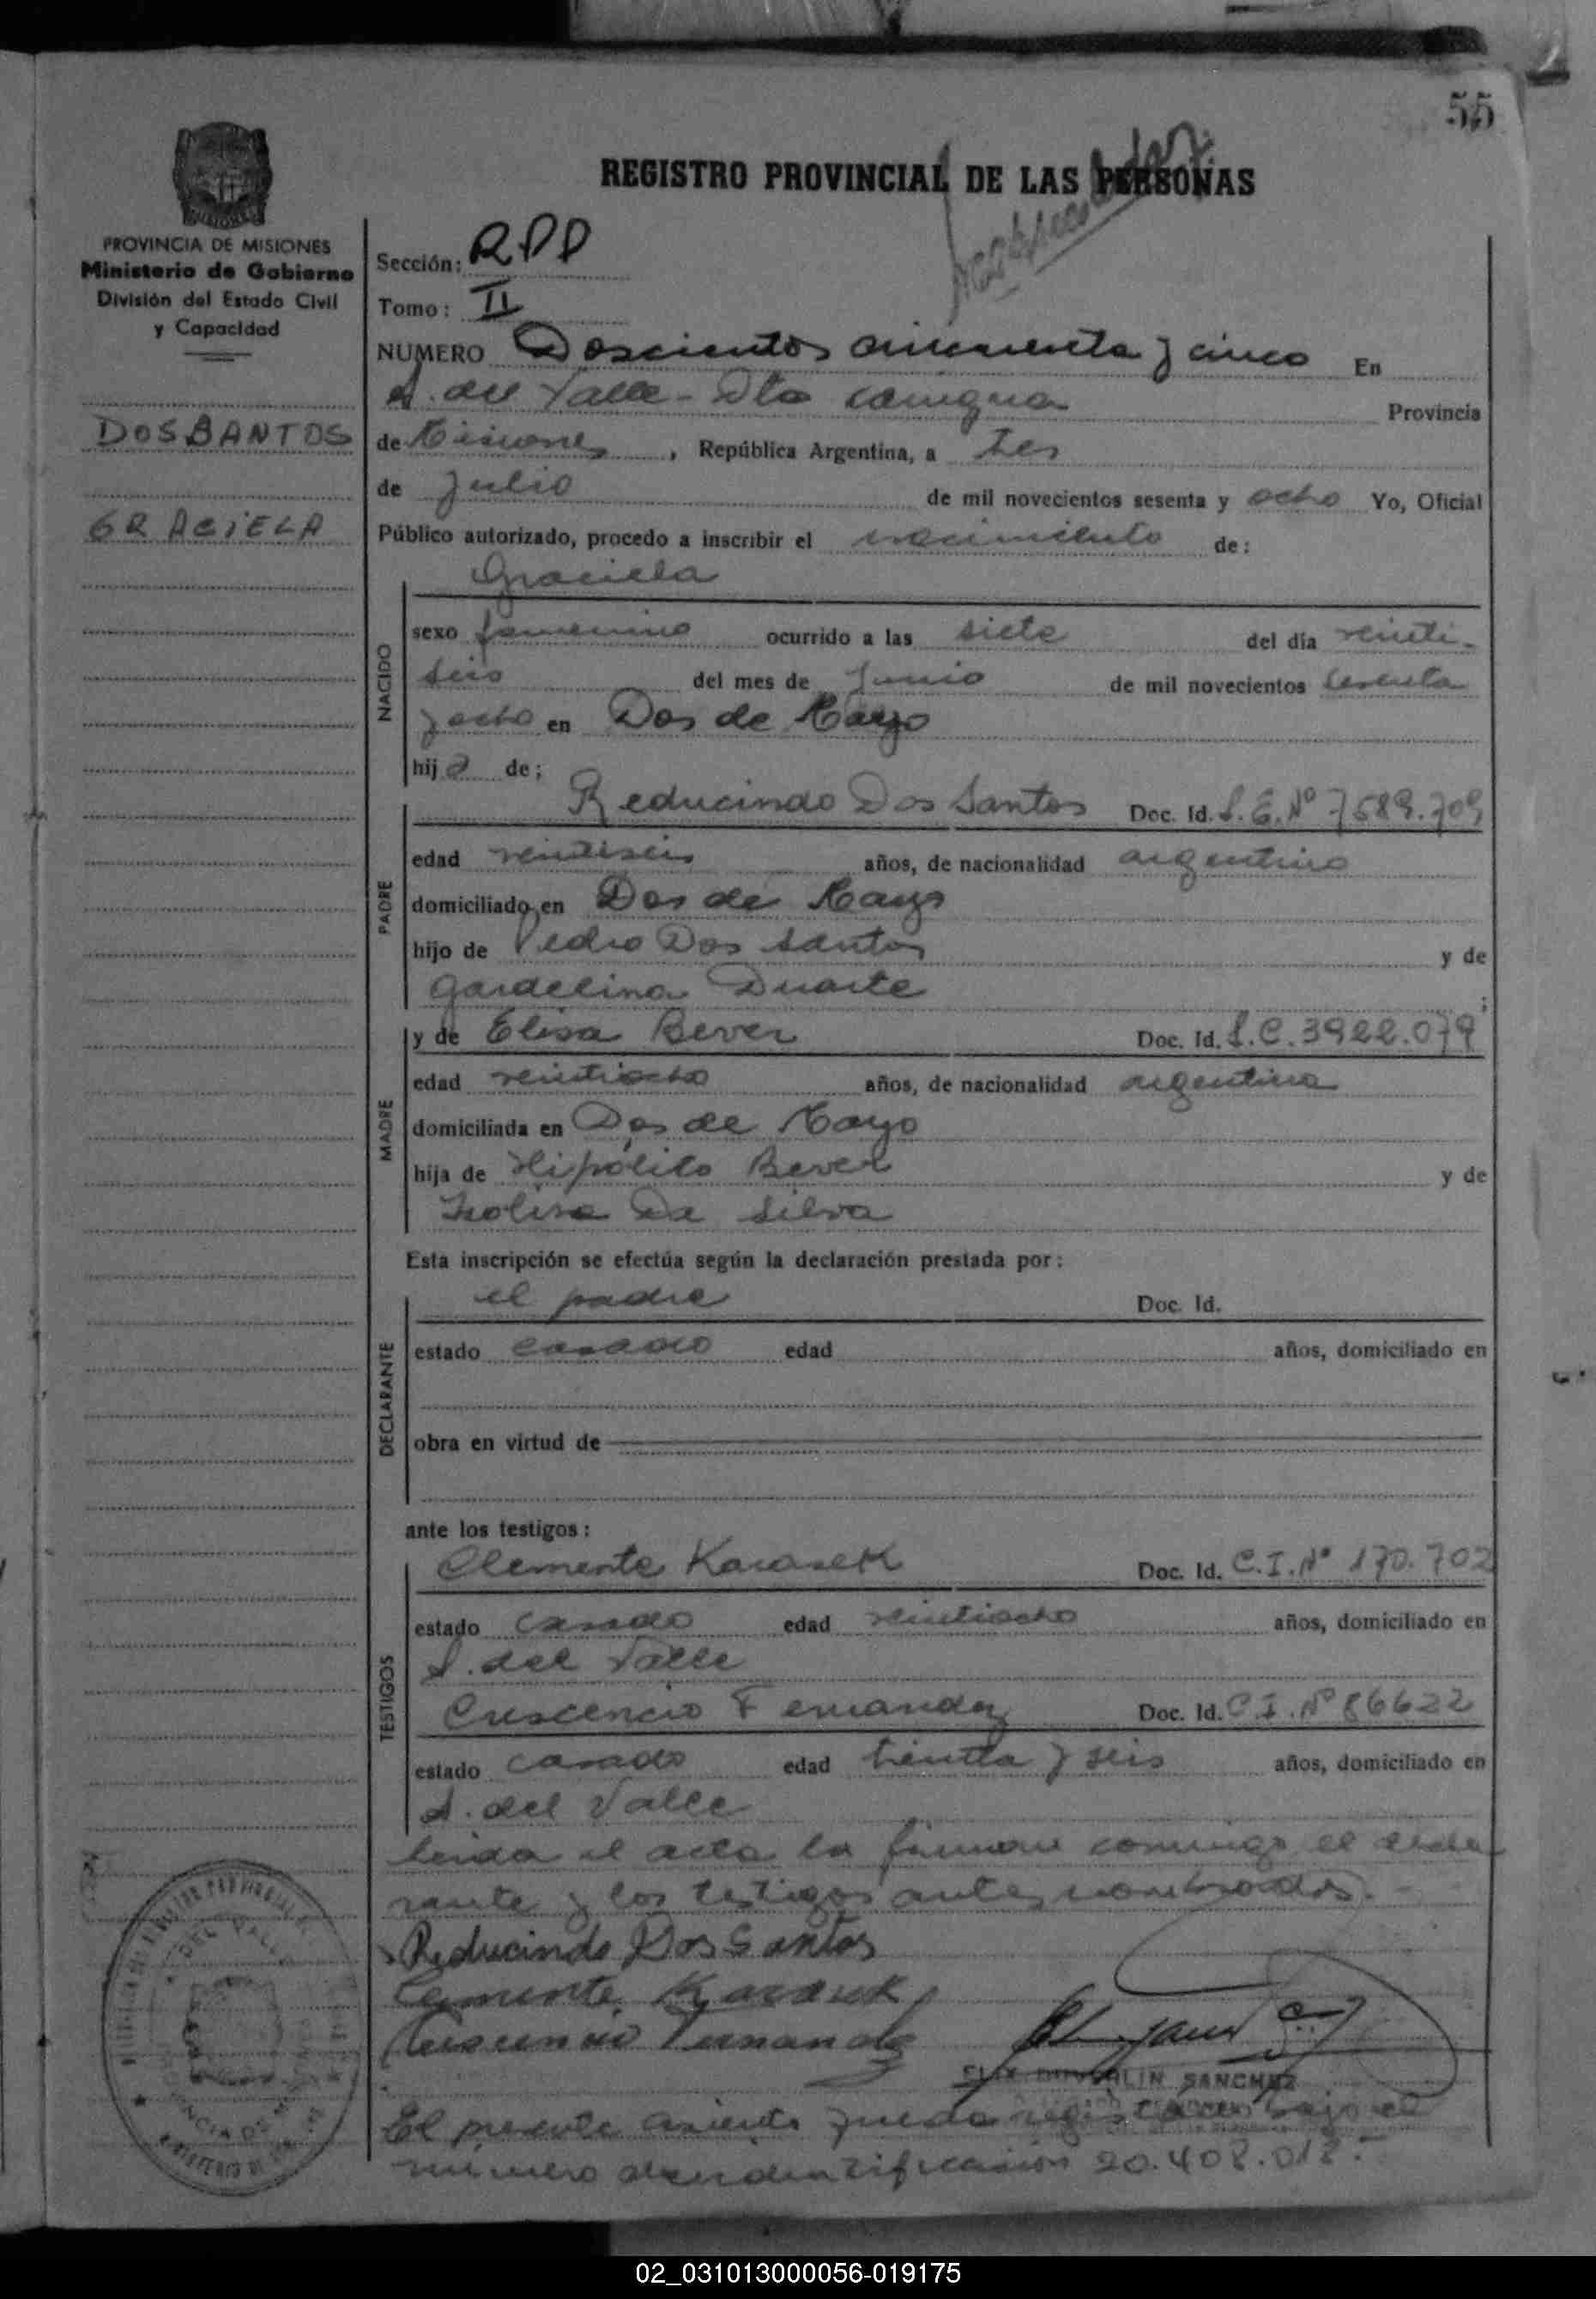 55
REGISTRO PROVINCIAL DE LAS PERSONAS
PROVINCIA DE MISIONES
Ministerio de Gobierno
División del Estado Civil
y Capacidad
DOS SANTOS
GRACIELA
Sección: RPP
Tomo: II
NUMERO Doscientos cincuenta y cinco En
A. del Valle - Dto Cainguas Provincia
de Misiones, República Argentina, a tres
de Julio de mil novecientos sesenta y ocho Yo, Oficial
Público autorizado, procedo a inscribir el nacimiento de:
Graciela
NACIDO
sexo femenino ocurrido a las siete del día veinti-
seis del mes de Junio de mil novecientos sesenta
y ocho en Dos de Mayo
hija de;
PADRE
Reducindo Dos Santos Doc. Id. L.E. Nº 7589.709
edad veintiseis años, de nacionalidad argentino
domiciliado en Dos de Mayo
hijo de Pedro Dos Santos y de
Gardelina Duarte ;
MADRE
y de Elisa Bever Doc. Id. L.C. 3922.079
edad veintiocho años, de nacionalidad argentina
domiciliada en Dos de Mayo
hija de Hipólito Bever y de
Isolina Da Silva
Esta inscripción se efectúa según la declaración prestada por:
DECLARANTE
el padre Doc. Id.
estado casado edad años, domiciliado en
obra en virtud de
ante los testigos:
TESTIGOS
Clemente Karasek Doc. Id. C.I. Nº 170.702
estado casado edad veintiocho años, domiciliado en
A. del Valle
Crescencio Fernandez Doc. Id. C.I. Nº 86622
estado casado edad treinta y seis años, domiciliado en
A. del Valle
Leida el acta la firman conmigo el decla
rante y los testigos antes nombrados.-
Reducindo Dos Santos
Clemente Karasek
Crescencio Fernandez
SANCHEZ
El presente asiento queda registrado bajo el
número de identificación 20.408.018.-
02_031013000056-019175